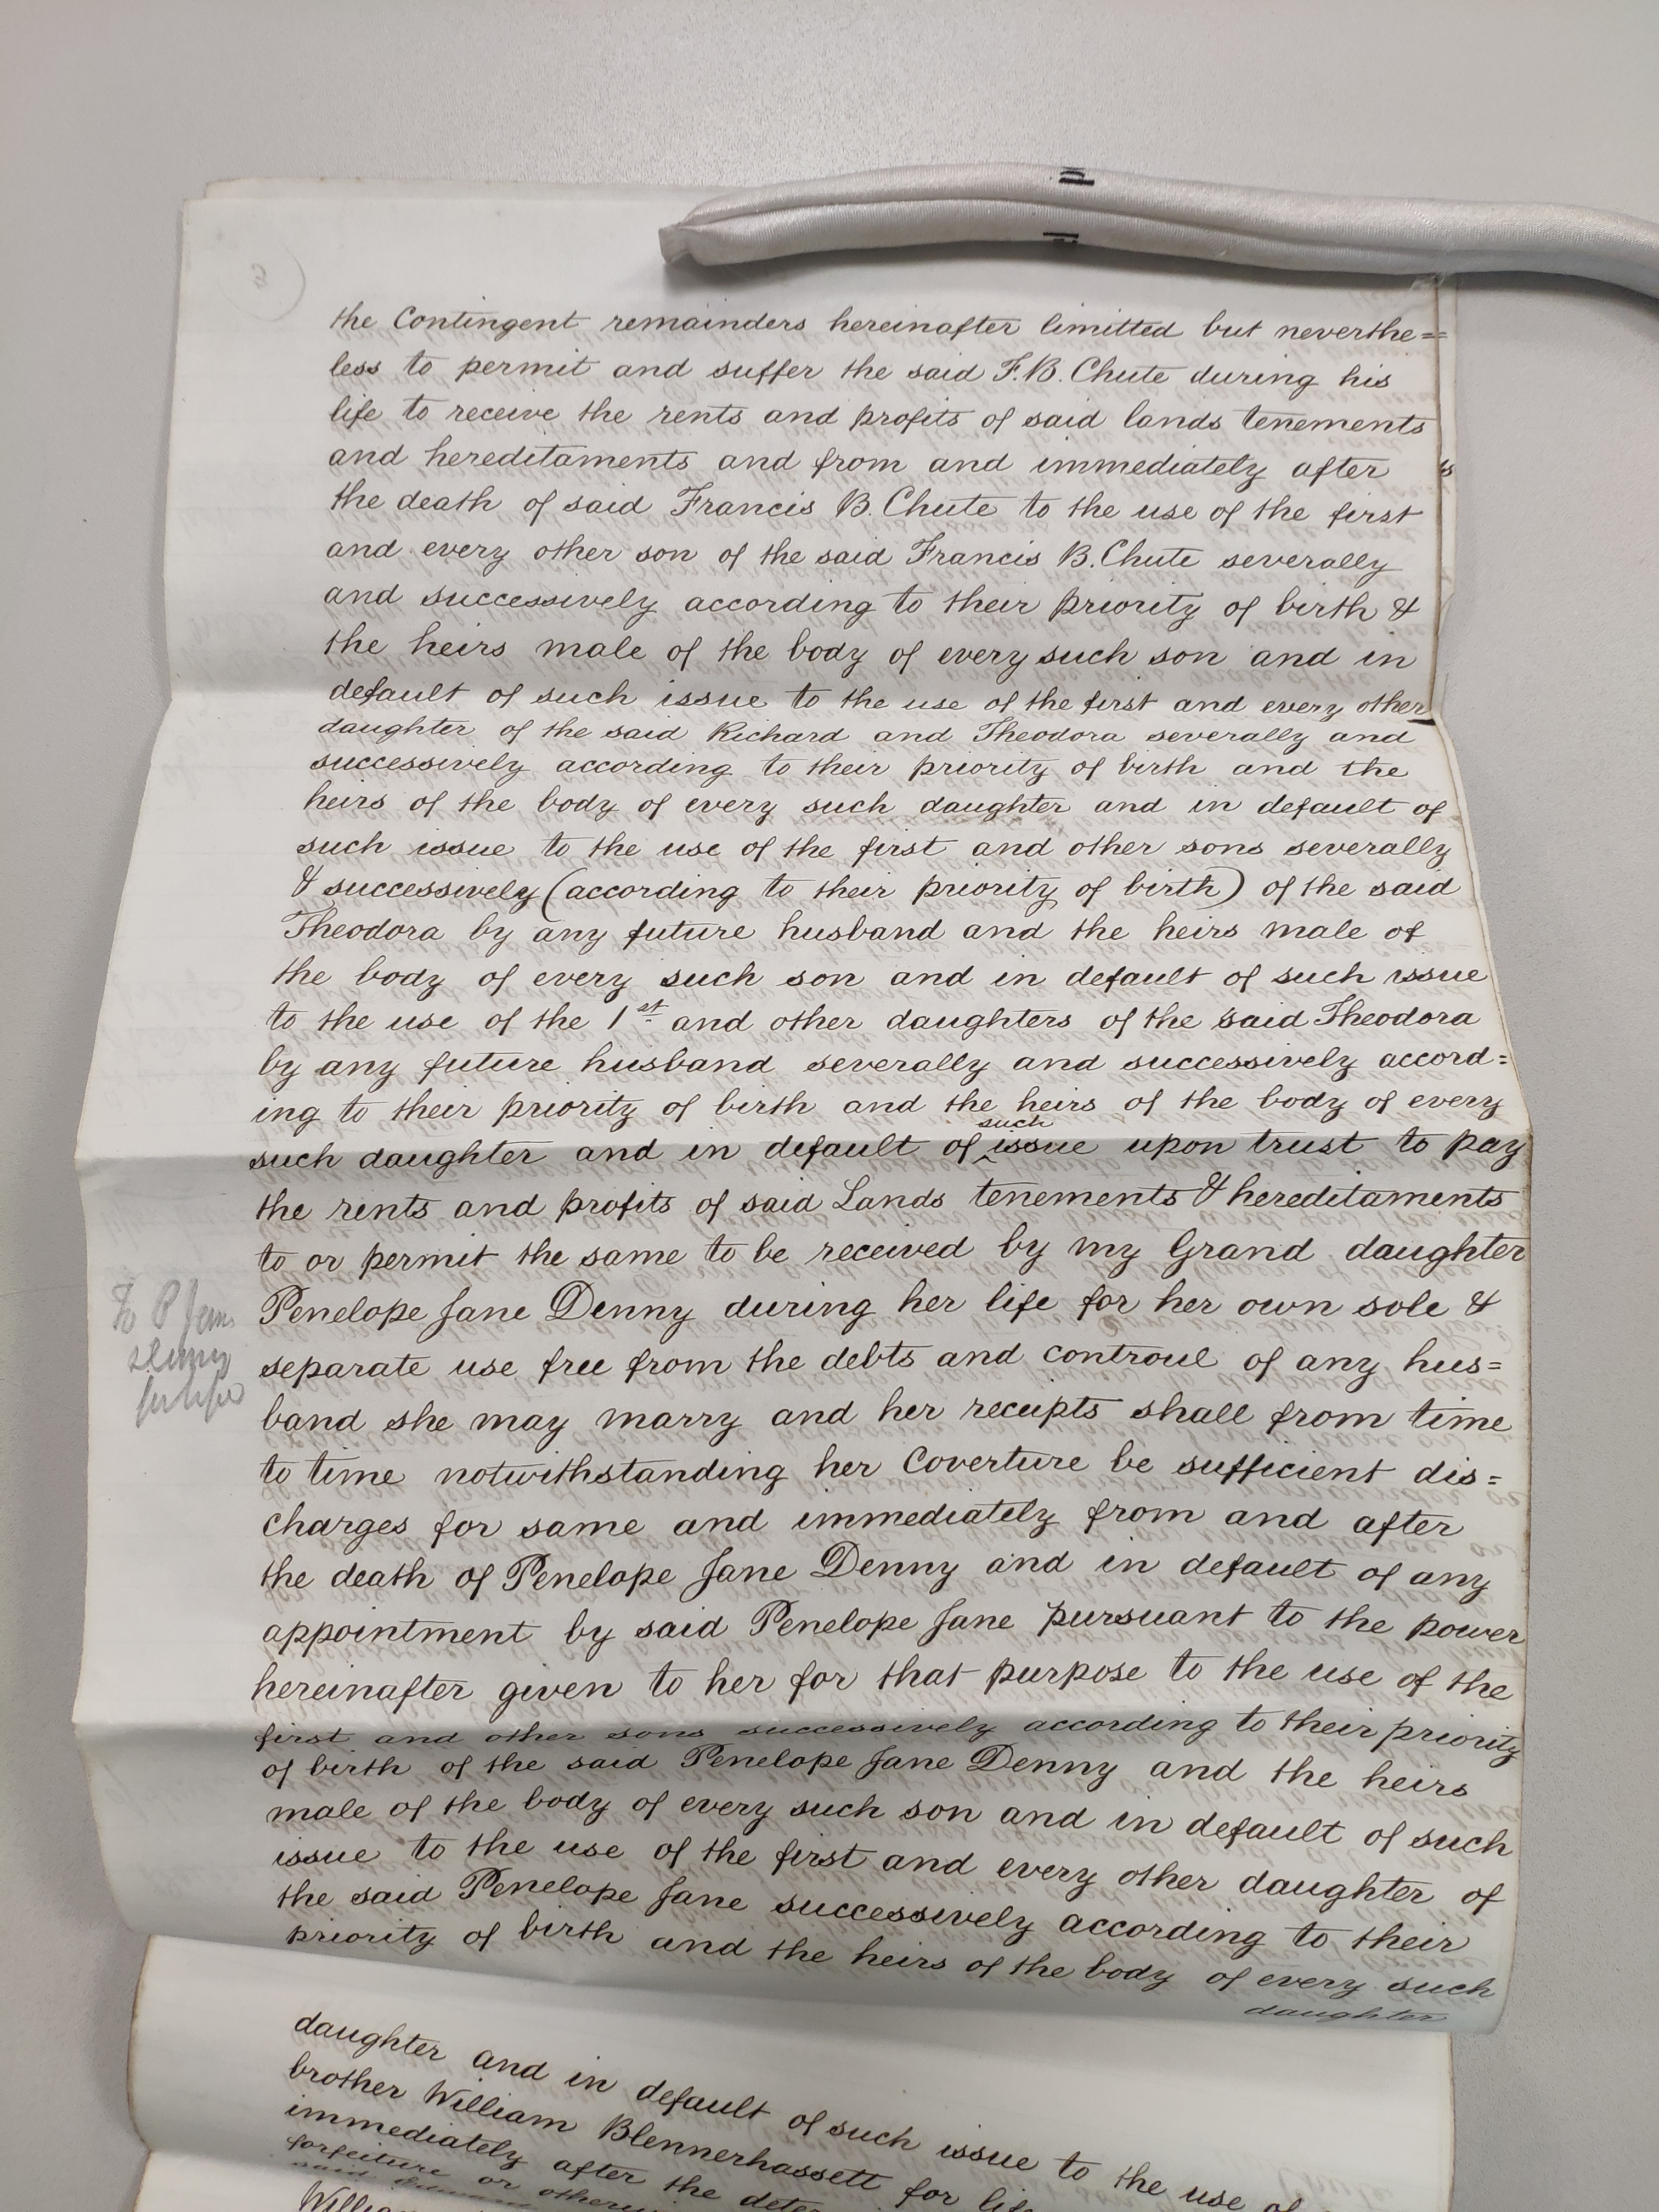 the Contingent remainders hereinafter limitted but neverthe=
less to permit and suffer the said F.B. Chute during his
life to receive the rents and profits of said lands tenements
and hereditaments and from and immediately after
the death of said Francis B. Chute to the use of the first
and every other son of the said Francis B. Chute severally
and successively according to their priority of birth &
the heirs male of the body of every such son and in
default of such issue to the use of the first and every other
daughter of the said Richard and Theodora severally and
successively according to their priority of birth and the
heirs of the body of every such daughter and in default of
such issue to the use of the first and other sons severally
& successively (according to their priority of birth) of the said
Theodora by any future husband and the heirs male of
the body of every such son and in default of such issue
to the use of the 1st and other daughters of the said Theodora
by any future husband severally and successively accord=
ing to their priority of birth and the heirs of the body of every
such daughter and in default of such issue upon trust to pay
the rents and profits of said Lands tenements & hereditaments
to or permit the same to be received by my Grand daughter
Penelope Jane Denny during her life for her own sole &
separate use free from the debts and controul of any hus=
band she may marry and her receipts shall from time
to time notwithstanding her Coverture be sufficient dis=
charges for same and immediately from and after
the death of Penelope Jane Denny and in default of any
appointment by said Penelope Jane pursuant to the power
hereinafter given to her for that purpose to the use of the
first and other sons successively according to their priority
of birth of the said Penelope Jane Denny and the heirs
male of the body of every such son and in default of such
issue to the use of the first and every other daughter of
the said Penelope Jane successively according to their
priority of birth and the heirs of the body of every such
daughter
To P Jane
Denny
for life
daughter and in default of such issue to the use of
brother William Blennerhassett for life
immediately after the
forfeiture or
William